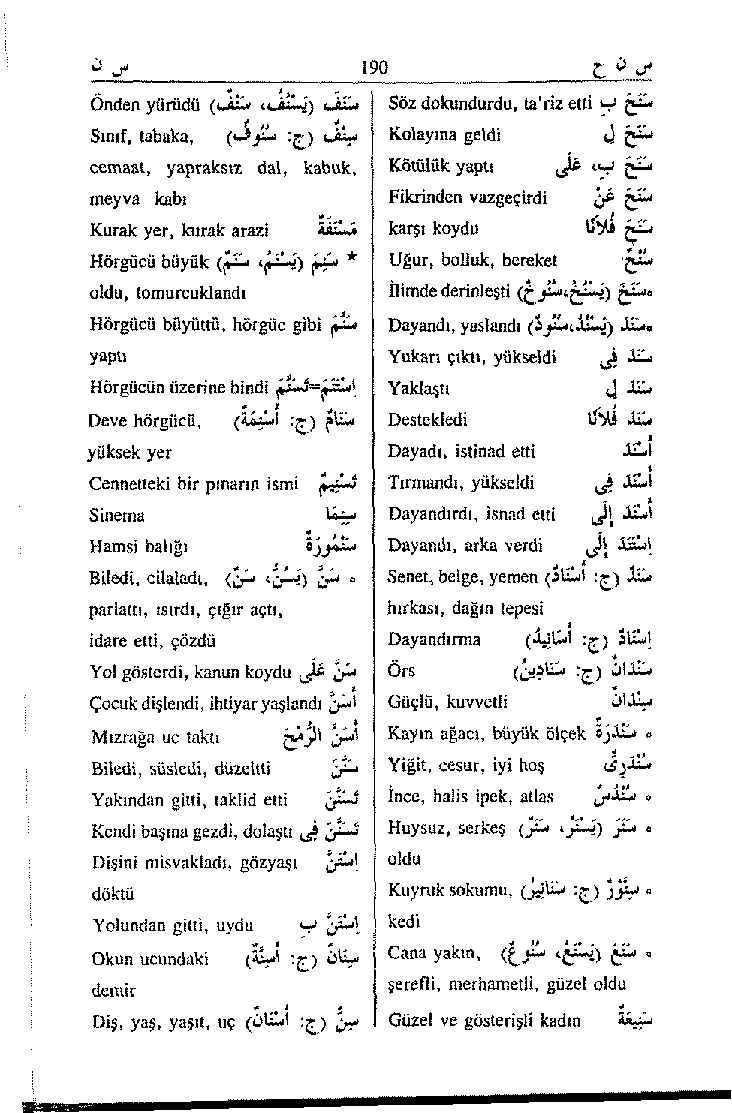 س ن ح 190 س ن
سَنَحَ ب Söz dokundurdu, ta'riz etti
سَنَحَ لِ Kolayına geldi
سَنَحَ ب، عَلَى Kötülük yaptı
سَنَحَ عَنْ Fikrinden vazgeçirdi
سَنَحَ فُلَانًا karşı koydu
سُنْحٌ Uğur, bolluk, bereket
سَنَخَ (يَسْنَخُ، سُنُوخ) İlimde derinleşti
سَنَدَ (يَسْنُدُ، سُنُودٌ) Dayandı, yaslandı
سَنَدَ فِى Yukarı çıktı, yükseldi
سَنَدَ لِ Yaklaştı
سَنَدَ فُلَانًا Destekledi
أَسْنَدَ Dayadı, istinad etti
أَسْنَدَ فِى Tırmandı, yükseldi
أَسْنَدَ إِلَى Dayandırdı, isnad etti
إِسْتَنَدَ إِلَى Dayandı, arka verdi
سَنَدٌ (ج: أَسْنَادٌ) Senet, belge, yemen
hırkası, dağın tepesi
إِسْنَادٌ (ج: أَسَانِيدُ) Dayandırma
سَنْدَانٌ (ج: سَنَادِينُ) Örs
سِنْدَانٌ Güçlü, kuvvetli
سَنْدَرَةٌ Kayın ağacı, büyük ölçek
سَنْدَرِىٌّ Yiğit, cesur, iyi hoş
سُنْدُسٌ İnce, halis ipek, atlas
سَنَرَ (يَسْنَرُ، سَنَرٌ) Huysuz, serkeş
oldu
سِنَّوْرٌ (ج: سَنَانِيرُ) Kuyruk sokumu,
kedi
سَنَعَ (يَسْنَعُ، سُنُوعٌ) Cana yakın,
şerefli, merhametli, güzel oldu
سَنِيعَةٌ Güzel ve gösterişli kadın
سَنَفَ (يَسْنُفُ، سَنْفٌ) Önden yürüdü
سِنْفٌ (ج: سُنُوفٌ) Sınıf, tabaka,
cemaat, yapraksız dal, kabuk,
meyva kabı
مَسْنَفَةٌ Kurak yer, kurak arazi
* سَنِمَ (يَسْنَمُ، سَنَمٌ) Hörgücü büyük
oldu, tomurcuklandı
سَنَّمَ Hörgücü büyüttü, hörgüc gibi
yaptı
إِسْتَنَمَ=تَسَنَّمَ Hörgücün üzerine bindi
سَنَامٌ (ج: أَسْنِمَةٌ) Deve hörgücü,
yüksek yer
تَسْنِيمٌ Cennetteki bir pınarın ismi
سِينِمَا Sinema
سَنْمُورَةٌ Hamsi balığı
سَنَّ (يَسُنُّ، سَنٌّ) Biledi, cilaladı,
parlattı, ısırdı, çığır açtı,
idare etti, çözdü
سَنَّ عَلَى Yol gösterdi, kanun koydu
أَسَنَّ Çocuk dişlendi, ihtiyar yaşlandı
أَسَنَّ الرُّمْحَ Mızrağa uc taktı
سَنَّنَ Biledi, süsledi, düzeltti
تَسَنَّنَ Yakından gitti, taklid etti
تَسَنَّنَ فِى Kendi başına gezdi, dolaştı
إِسْتَنَّ Dişini misvakladı, gözyaşı
döktü
إِسْتَنَّ بِ Yolundan gitti, uydu
سِنَانٌ (ج: أَسِنَّةٌ) Okun ucundaki
demir
سِنٌّ (ج: أَسْنَانٌ) Diş, yaş, yaşıt, uç